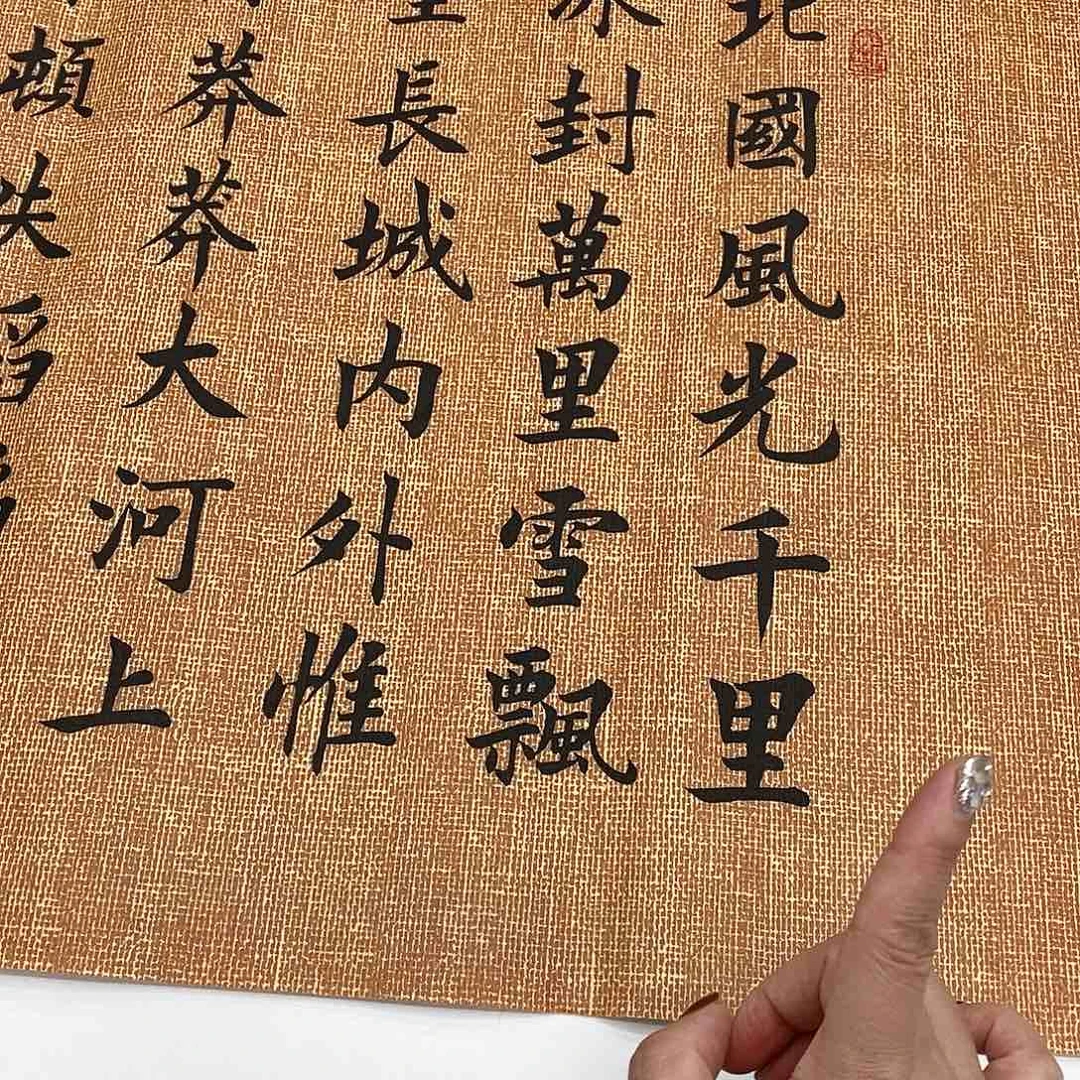 北國風光千里
冰封萬里雪飄
望長城内外惟
莽莽大河上
頓失滔